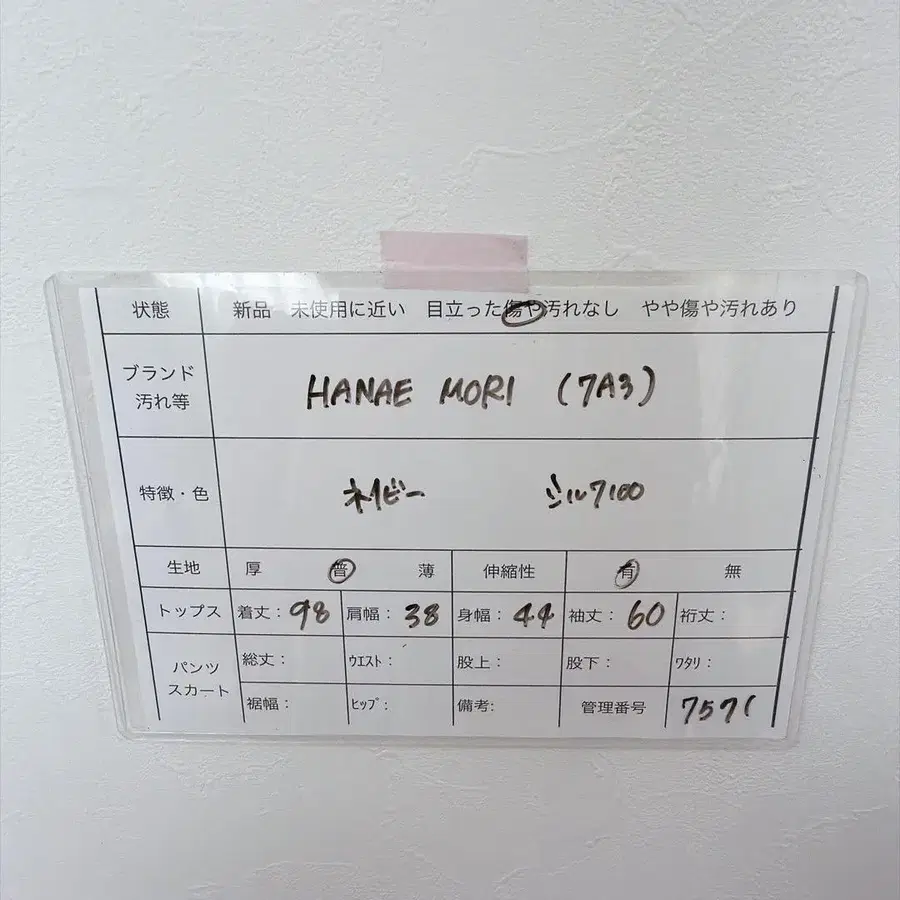 状態 新品 未使用に近い 目立った傷や汚れなし やや傷や汚れあり
ブランド
汚れ等 HANAE MORI (7A3)
特徴・色 ネイビー シルク100
生地 厚 普 薄 伸縮性 有 無
トップス 着丈：98 肩幅：38 身幅：44 袖丈：60 裄丈：
パンツ
スカート
総丈： ウエスト： 股上： 股下： ワタリ：
裾幅： ヒップ： 備考: 管理番号 7571